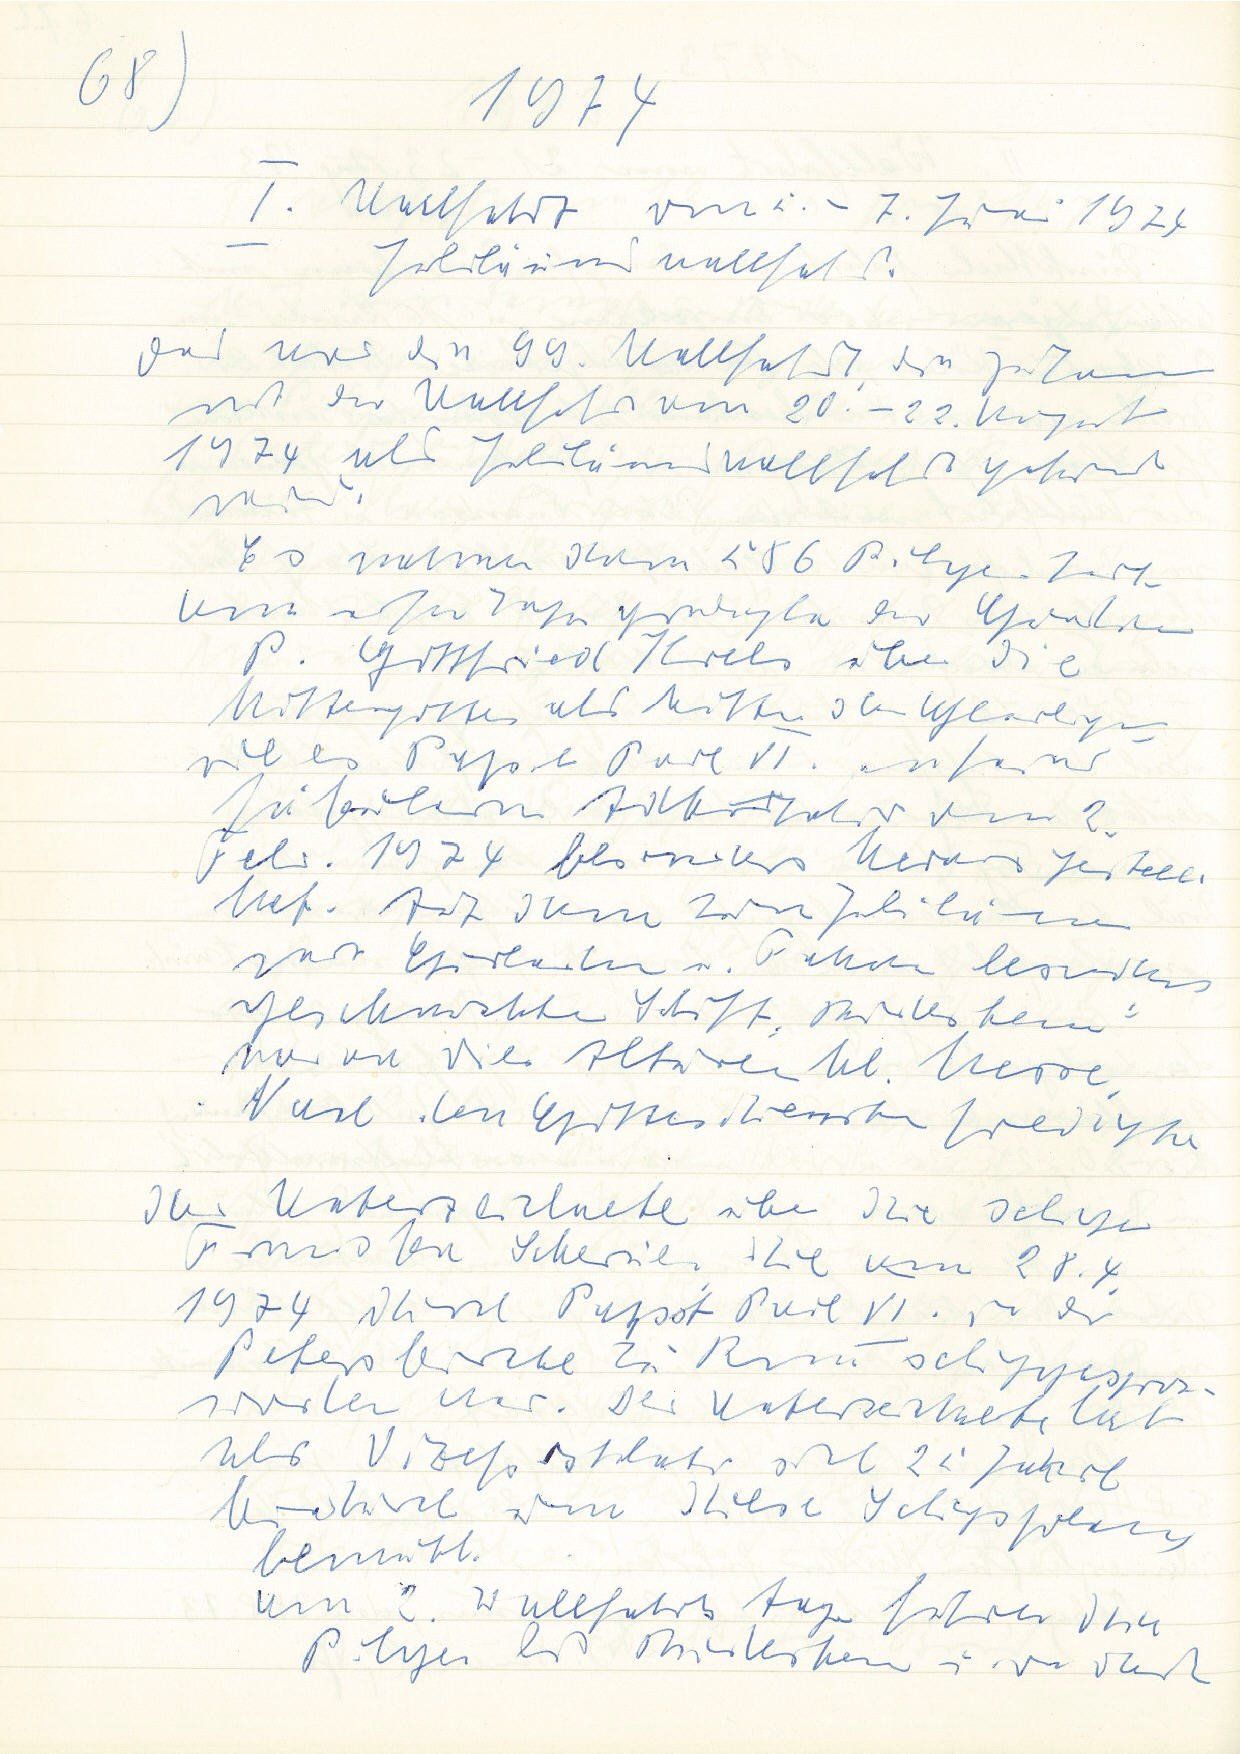 68)
1974
I. Wallfahrt vom 5. - 7. Juni 1974
Jubiläumswallfahrt.
Das war die 99. Wallfahrt, die zusammen
mit der Wallfahrt vom 20. - 22. August
1974 als Jubiläumswallfahrt gefeiert
wird.
Es nahmen daran 586 Pilger teil.
Am ersten Tage predigte der
P. Gottfried über die
Muttergottes als Mutter der
wie es Papst Paul VI. in seinem
vom 2.
Febr. 1974 besonders herausgestellt
hat. Auf dem zum Jubiläum
mit Girlanden u. Fahnen besonders
geschmückten Schiff
war an vier Altären hl. Messe.
Nach den Gottesdiensten predigte
der Unterzeichnete über die selige
Franziska Schervier, die am 28.4.
1974 durch Papst Paul VI. in der
Peterskirche zu Rom seliggespro-
worden war. Der Unterzeichnete hat
als Vizepostulator sich 25 Jahre
hindurch um diese Seligsprechung
bemüht.
Am 2. Wallfahrts Tage fuhren die
Pilger bis u. von dort